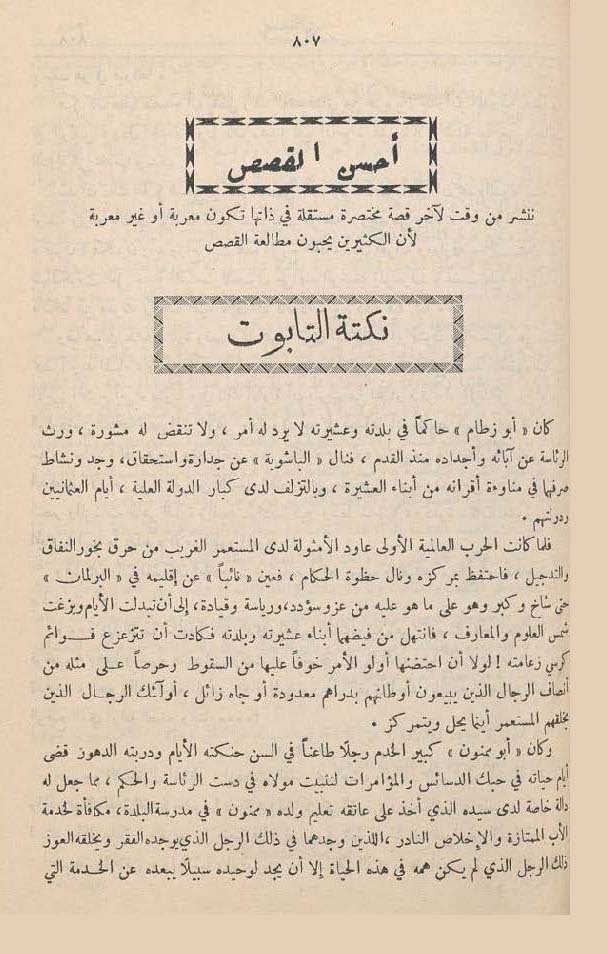 ٨٠٧
أحسن القصص
ننشر من وقت لآخر قصة مختصرة مستقلة في ذاتها تكون معربة أو غير معربة
لأن الكثيرين يحبون مطالعة القصص
نكتة التابوت
كان « أبو زطام » حاكماً في بلدته وعشيرته لا يرد له أمر ، ولا تنقض له مشورة ، ورث
الرئاسة عن آبائه وأجداده منذ القدم ، فنال « الباشوية » عن جدارة واستحقاق، وجد ونشاط
صرفها في مناوءة أقرانه من أبناء العشيرة ، وبالتزلف لدى كبار الدولة العلية ، أيام العثمانيين
ودولتهم .
فلما كانت الحرب العالمية الأولى عاود الأمثولة لدى المستعمر الغريب من حرق بخور النفاق
والتدجيل ، فاحتفظ بمركزه ونال حظوة الحكام ، فعين « نائباً » عن إقليمه في « البرلمان »
حتى شاخ وكبر وهو على ما هو عليه من عز وسؤدد، ورياسة وقيادة، إلى أن تبدلت الأيام وبزغت
شمس العلوم والمعارف ، فانتهل من فيضها أبناء عشيرته وبلدته فكادت أن تتزعزع قوائم
كرسي زعامته ! لولا أن احتضنها أولو الأمر خوفاً عليها من السقوط وحرصاً على مثله من
أنصاف الرجال الذين يبيعون أوطانهم بدراهم معدودة أو جاه زائل ، أولئك الرجال الذين
يخلقهم المستعمر أينما يحل ويتمركز .
وكان « أبو ممنون » كبير الخدم رجلًا طاعناً في السن حنكته الأيام ودربته الدهور قضى
أيام حياته في حبك الدسائس والمؤامرات لتثبيت مولاه في دست الرئاسة والحكم ، مما جعل له
دالة خاصة لدى سيده الذي أخذ على عاتقه تعليم ولده « ممنون » في مدرسة البلدة، مكافأة لخدمة
الأب الممتازة والإخلاص النادر ، اللذين وجدهما في ذلك الرجل الذي يوجده الفقر ويخلقه العوز
ذلك الرجل الذي لم يكن همه في هذه الحياة إلا أن يجد لوحيده سبيلًا يبعده عن الخدمة التي